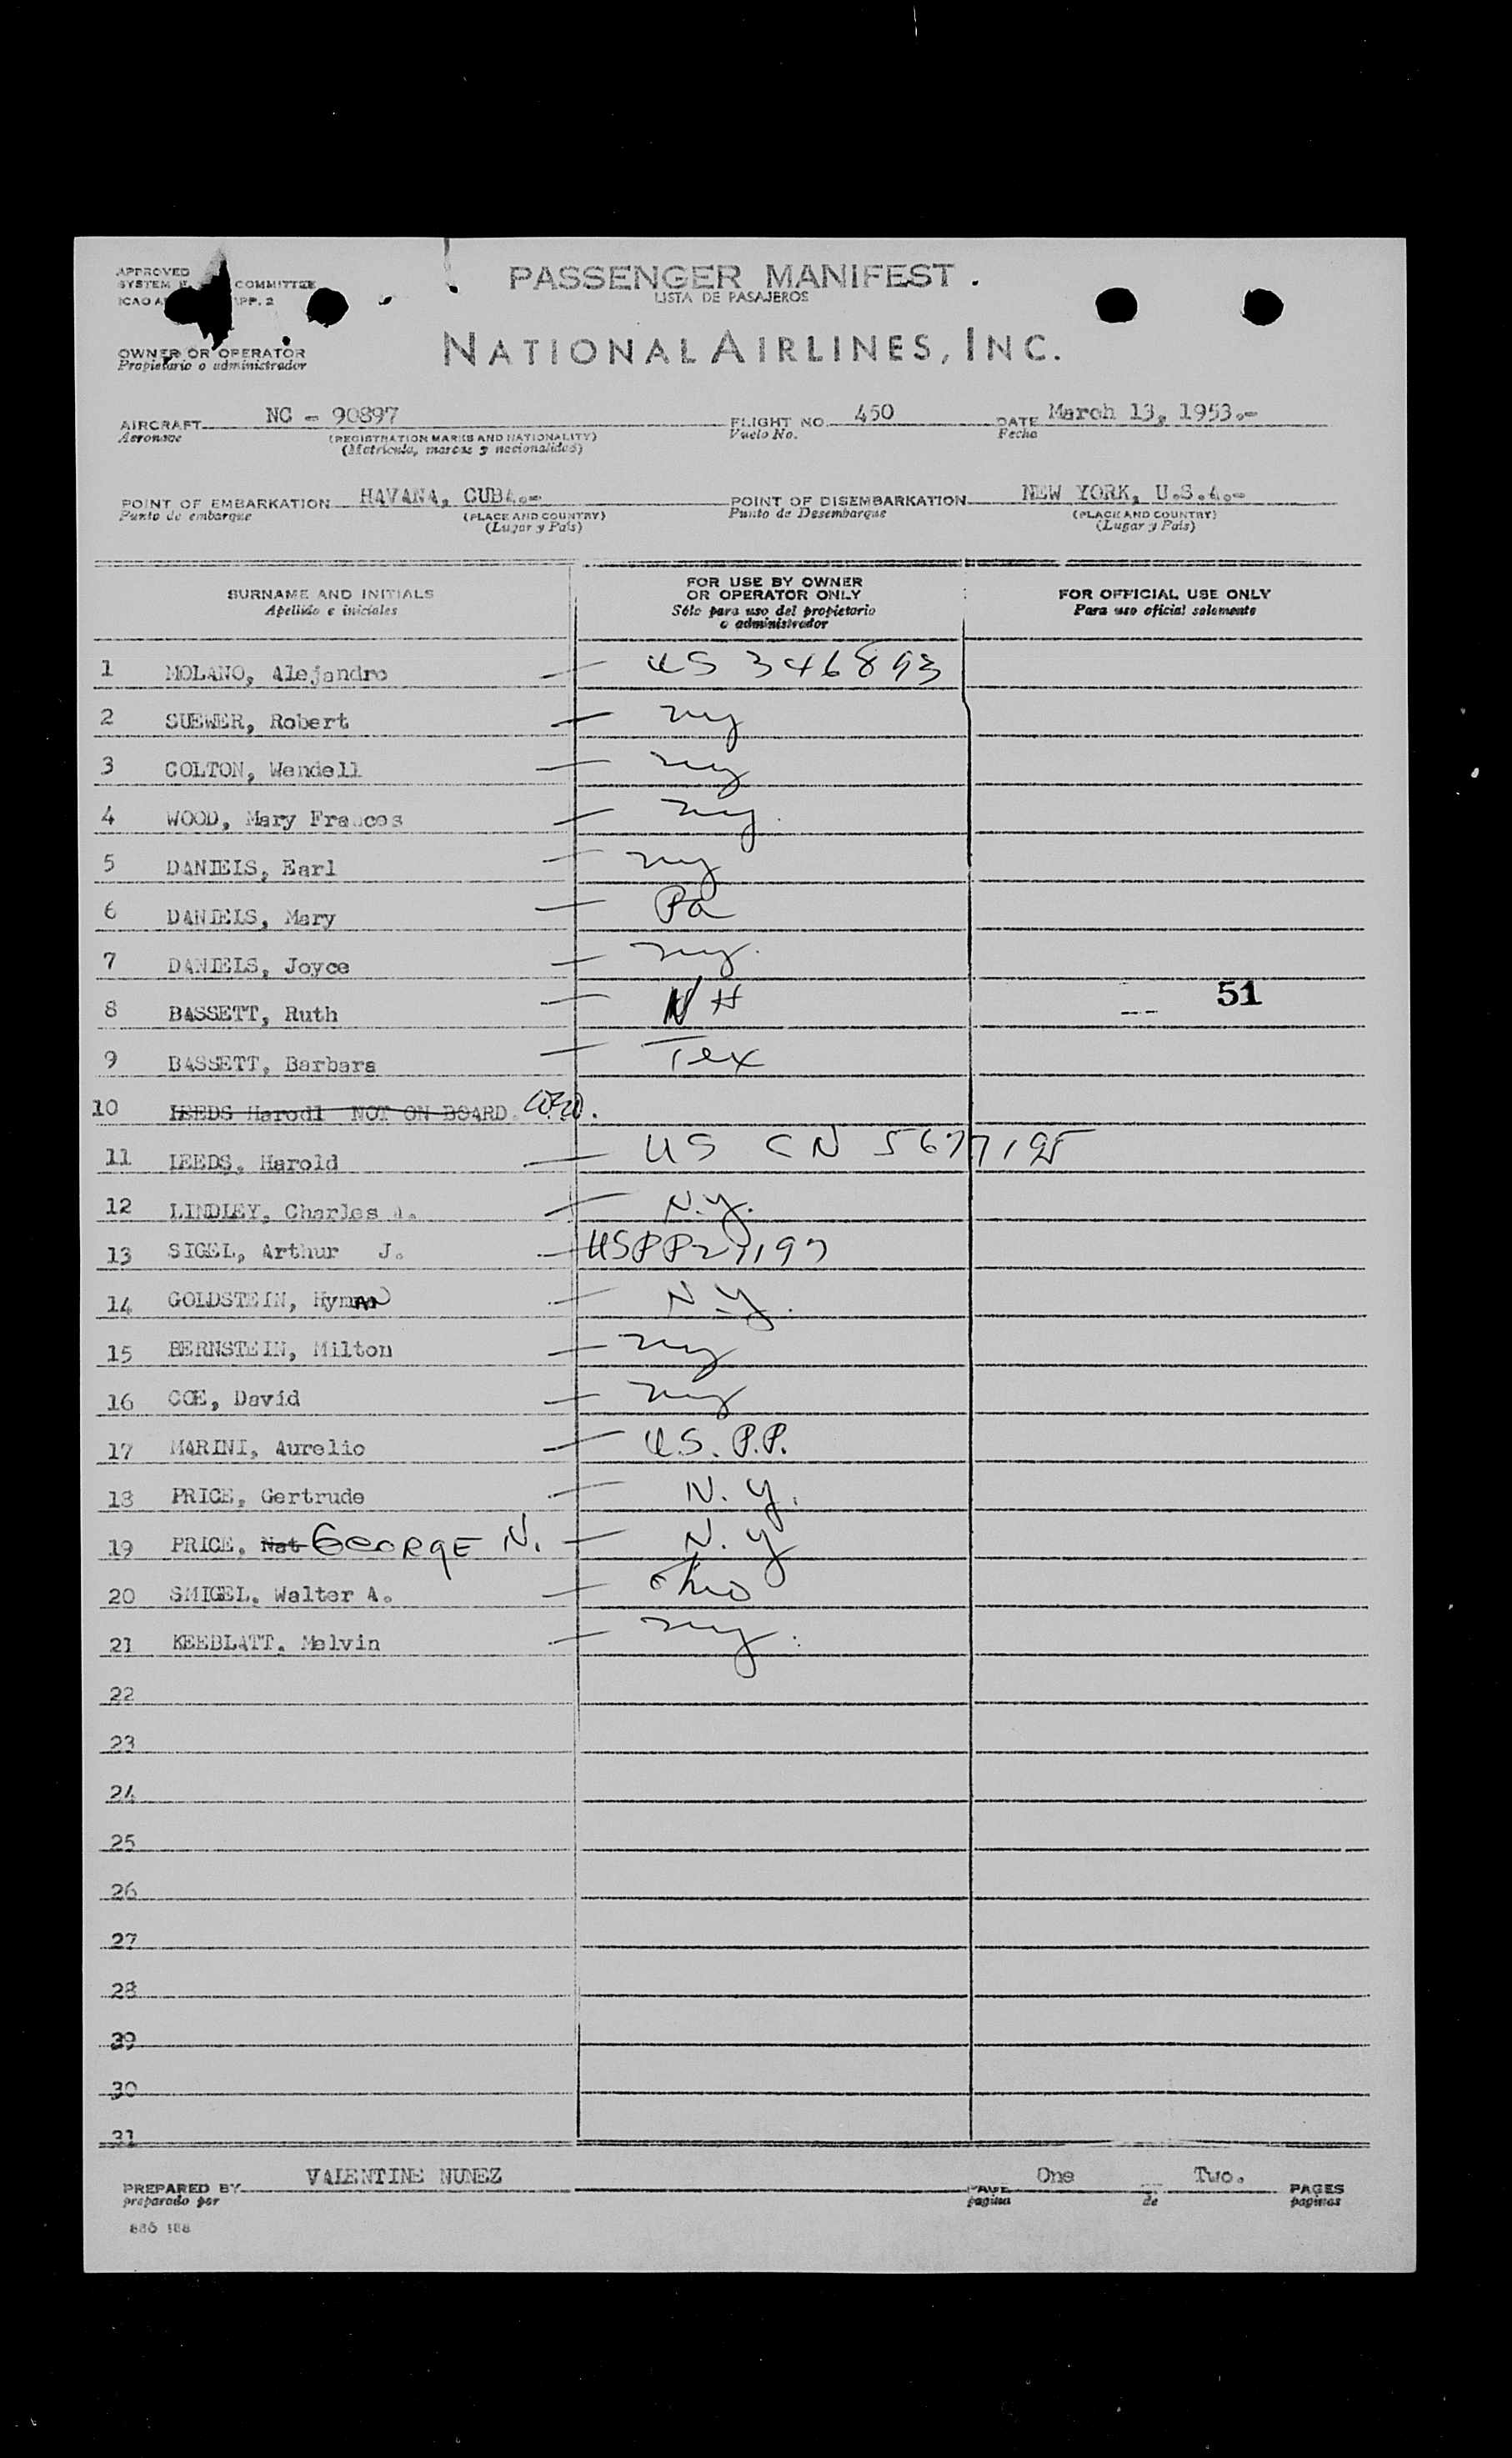 APPROVED
SYSTEM COMMITTEE
ICAO APP. 2
PASSENGER MANIFEST.
LISTA DE PASAJEROS
NATIONAL AIRLINES, INC.
OWNER OR OPERATOR
Propietario o administrador
AIRCRAFT NC - 90897 FLIGHT NO. 450 DATE March 13, 1953.-
Aeronave (REGISTRATION MARKS AND NATIONALITY) Vuelo No. Fecha
(Matricula, marcas y nacionalidad)
POINT OF EMBARKATION HAVANA, CUBA.- POINT OF DISEMBARKATION NEW YORK, U.S.A.-
Punto de embarque (PLACE AND COUNTRY) Punto de Desembarque (PLACE AND COUNTRY)
(Lugar y País) (Lugar y País)
SURNAME AND INITIALS FOR USE BY OWNER OR OPERATOR ONLY FOR OFFICIAL USE ONLY
Apellido e iniciales Sólo para uso del propietario o administrador Para uso oficial solamente
1 MOLANO, Alejandro — US 346893
2 SUEWER, Robert — NY
3 COLTON, Wendell — NY
4 WOOD, Mary Frances — NY.
5 DANIELS, Earl — NY
6 DANIELS, Mary — Pa
7 DANIELS, Joyce — NY.
8 BASSETT, Ruth — NH 51
9 BASSETT, Barbara — Tex
10 LEEDS Harodl NOT ON BOARD.
11 LEEDS, Harold — US CN 5677195
12 LINDLEY, Charles A. — N.Y.
13 SIGEL, Arthur J. — USPP27197
14 GOLDSTEIN, Hyman — N.Y.
15 BERNSTEIN, Milton — NY
16 COE, David — NY
17 MARINI, Aurelio — U.S. P.P.
18 PRICE, Gertrude — N.Y.
19 PRICE, Nat GEORGE N. — N.Y
20 SMIGEL, Walter A. — Ohio
21 KEEBLATT, Melvin — NY.
22
23
24
25
26
27
28
29
30
31
PREPARED BY VALENTINE NUNEZ PAGE One Two. PAGES
preparado por pagina de paginas